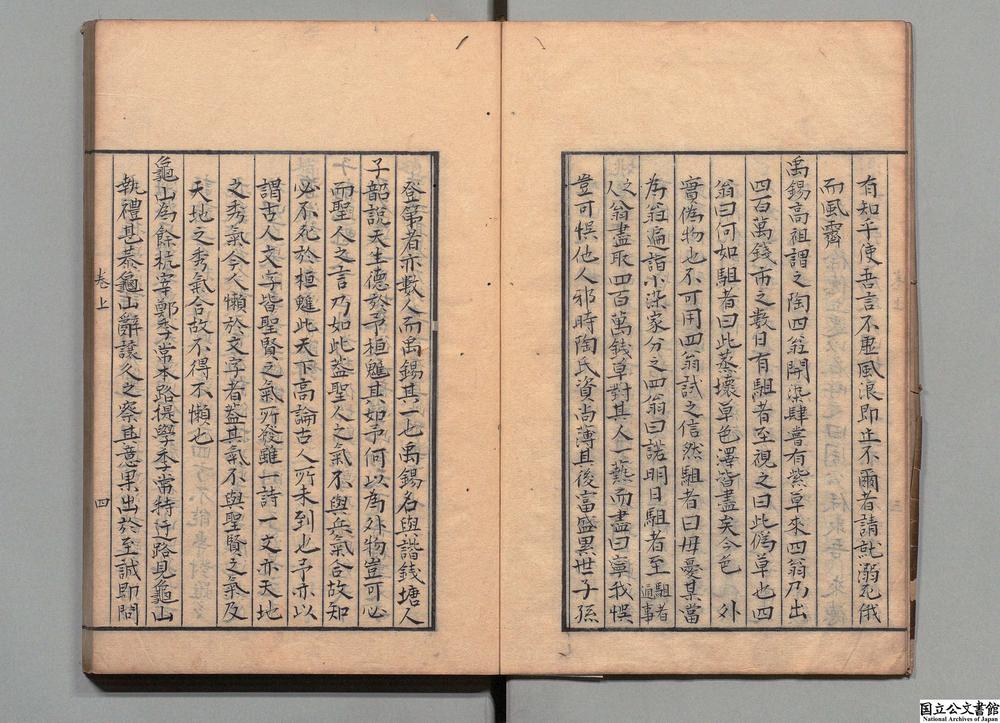 有知乎使吾言不虛風浪即止不爾者請就溺死俄
而風霽
禹錫高祖謂之陶四翁開染肆嘗有紫草來四翁乃出
四百萬錢市之數日有駔者至視之曰此僞草也四
翁曰何如駔者曰此蒸壞草色澤皆盡矣今色 外
實僞物也不可用四翁試之信然駔者曰毋憂某當
為翁遍詣小染家分之四翁曰諾明日駔者至駔者通事
人之翁盡取四百萬錢草對其人一爇而盡曰寧我悞
豈可悞他人邪時陶氏資尚薄其後富盛累世子孫
登第者亦數人而禹錫其一也禹錫名與諧錢塘人
子韶說天生德於予桓魋其如予何以為外物豈可必
而聖人之言乃如此葢聖人之氣不與兵氣合故知
必不死於桓魋此天下高論古人所未到也予亦以
謂古人文字皆聖賢之氣所發雖一詩一文亦天地
之秀氣今人懶於文字者葢其氣不與聖賢之氣及
天地之秀氣合故不得不懶也
龜山為餘杭宰鄭季常本路提學季常特迂路見龜山
執禮甚恭龜山辭讓久之察其意果出於至誠即問
卷上
四
国立公文書館
National Archives of Japan